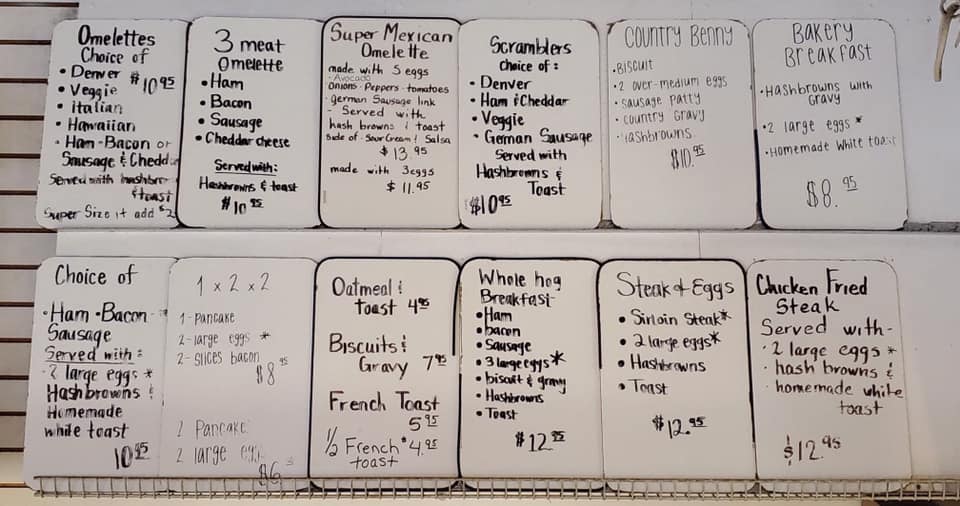 Omelettes
Choice of
• Denver $10.95
• Veggie
• Italian
• Hawaiian
• Ham-Bacon or
Sausage & Chedd
Served with hashbro
& toast
Super Size it add $2
3 meat
Omelette
• Ham
• Bacon
• Sausage
• Cheddar cheese
Served with:
Hashbrowns & toast
$10.95
Super Mexican
Omelette
made with 5 eggs
- Avocado
onions - Peppers - tomatoes
- german Sausage link
Served with
hash browns & toast
Side of Sour Cream & Salsa
$13.95
made with 3eggs
$11.95
Scramblers
Choice of :
• Denver
• Ham & Cheddar
• Veggie
• German Sausage
Served with
Hashbrowns &
Toast
$10.95
COUNTRY BENNY
• BISCUIT
• 2 over-medium eggs
• Sausage Patty
• Country Gravy
• Hashbrowns
$10.95
BAKERY
BREAKFAST
• Hashbrowns with
GRAVY
• 2 large eggs *
• Homemade White toast
$8.95
Choice of
• Ham • Bacon
Sausage
Served with :
• 2 large eggs *
Hashbrowns &
Homemade
white toast
10.95
1 x 2 x 2
1 - Pancake
2 - large eggs *
2 - Slices bacon
$8.95
2 Pancake
2 large egg
$6
Oatmeal &
toast 4.95
Biscuits &
Gravy 7.95
French Toast
5.95
1/2 French 4.95
toast
Whole hog
Breakfast
• Ham
• bacon
• Sausage
• 3 large eggs *
• biscuit & gravy
• Hashbrowns
• Toast
$12.95
Steak & Eggs
• Sirloin Steak *
• 2 large eggs *
• Hashbrowns
• Toast
$12.95
Chicken Fried
Steak
Served with -
• 2 large eggs *
• hash browns &
• homemade white
toast
$12.95